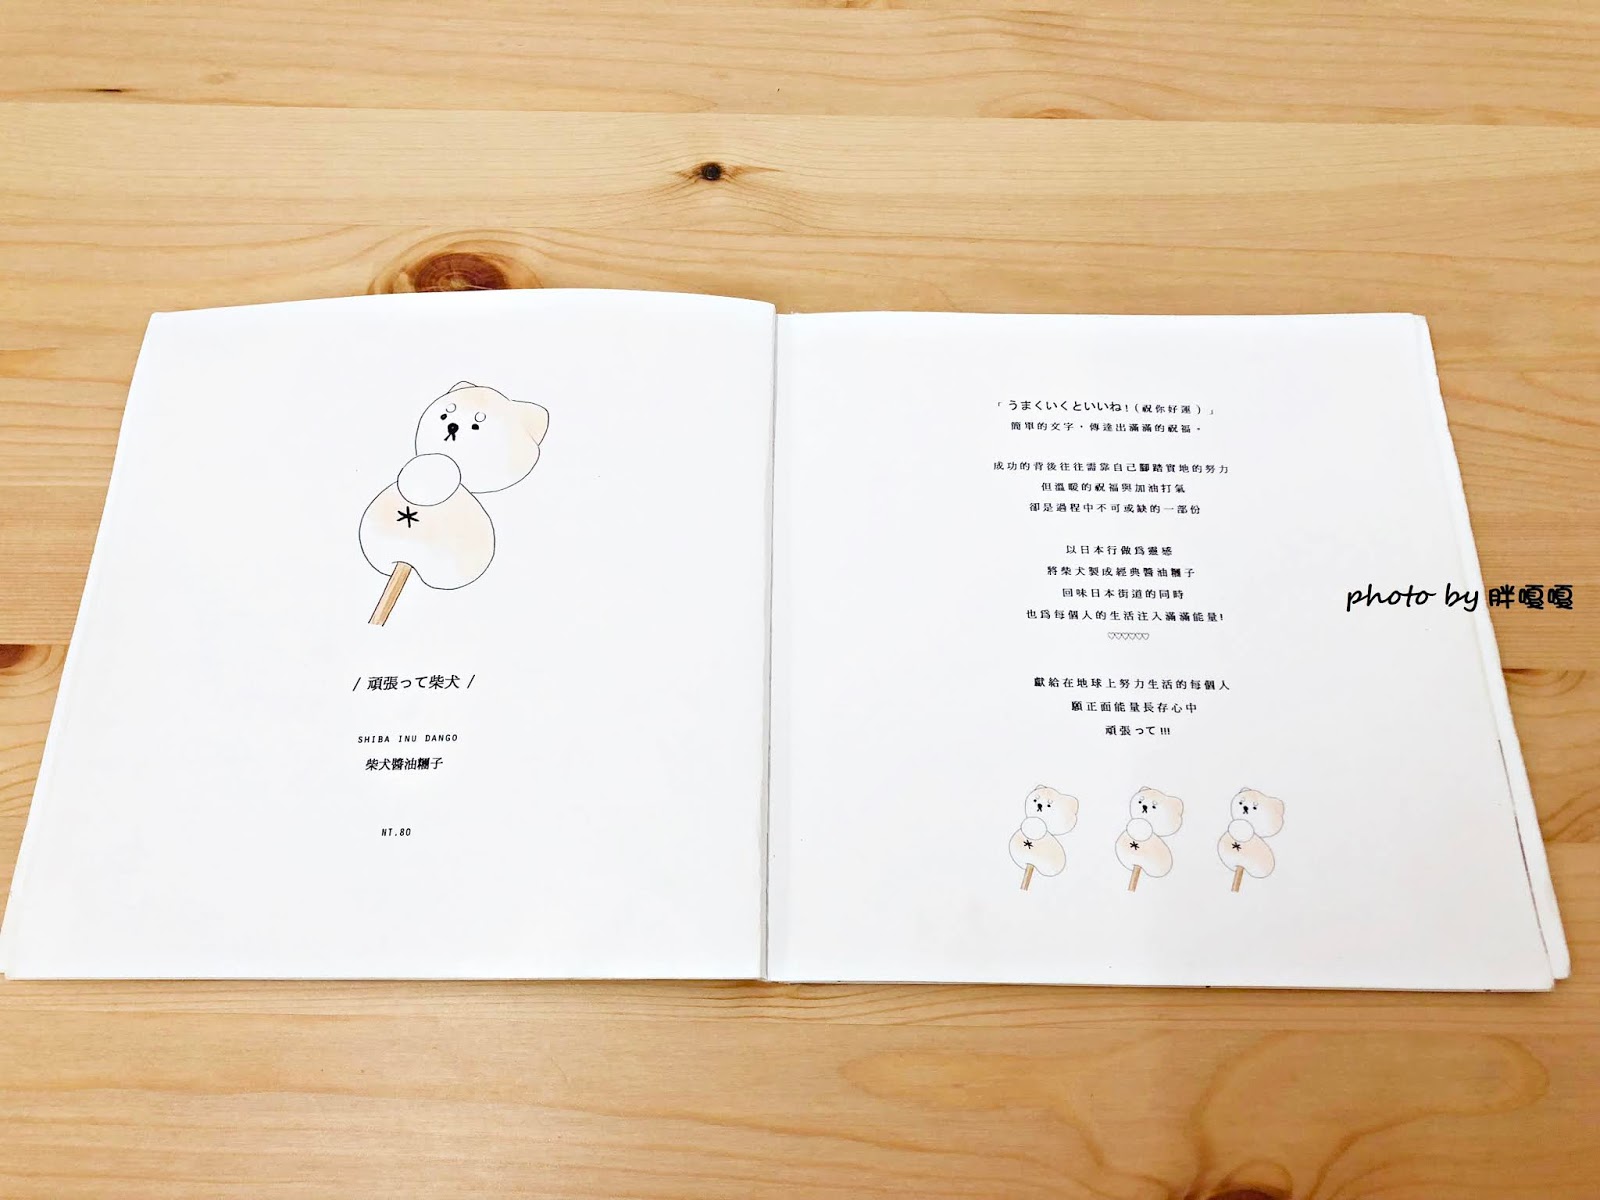 / 頑張って柴犬 /
SHIBA INU DANGO
柴犬醬油糰子
NT.80
「うまくいくといいね!(祝你好運)」
簡單的文字,傳達出滿滿的祝福。
成功的背後往往需靠自己腳踏實地的努力
但溫暖的祝福與加油打氣
卻是過程中不可或缺的一部份
以日本行做為靈感
將柴犬製成經典醬油糰子
回味日本街道的同時
也為每個人的生活注入滿滿能量!
♡♡♡♡♡♡
獻給在地球上努力生活的每個人
願正面能量長存心中
頑張って!!!
photo by 胖嘎嘎